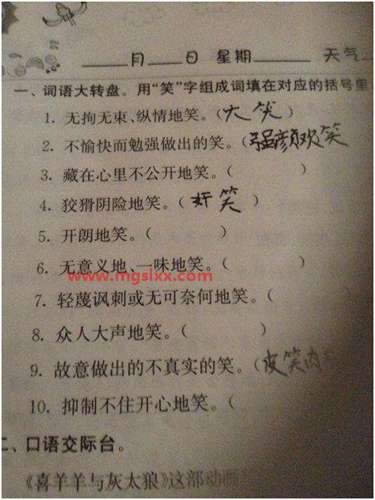 ___月___日 星期___ 天气
一、词语大转盘。用“笑”字组成词填在对应的括号里
1. 无拘无束、纵情地笑。(大笑)
2. 不愉快而勉强做出的笑。(强颜欢笑
3. 藏在心里不公开地笑。( )
4. 狡猾阴险地笑。(奸笑)
5. 开朗地笑。( )
6. 无意义地、一味地笑。( )
www.mgslxx.com
7. 轻蔑讽刺或无可奈何地笑。( )
8. 众人大声地笑。( )
9. 故意做出的不真实的笑。(皮笑肉
10. 抑制不住开心地笑。(
二、口语交际台。
《喜羊羊与灰太狼》这部动画